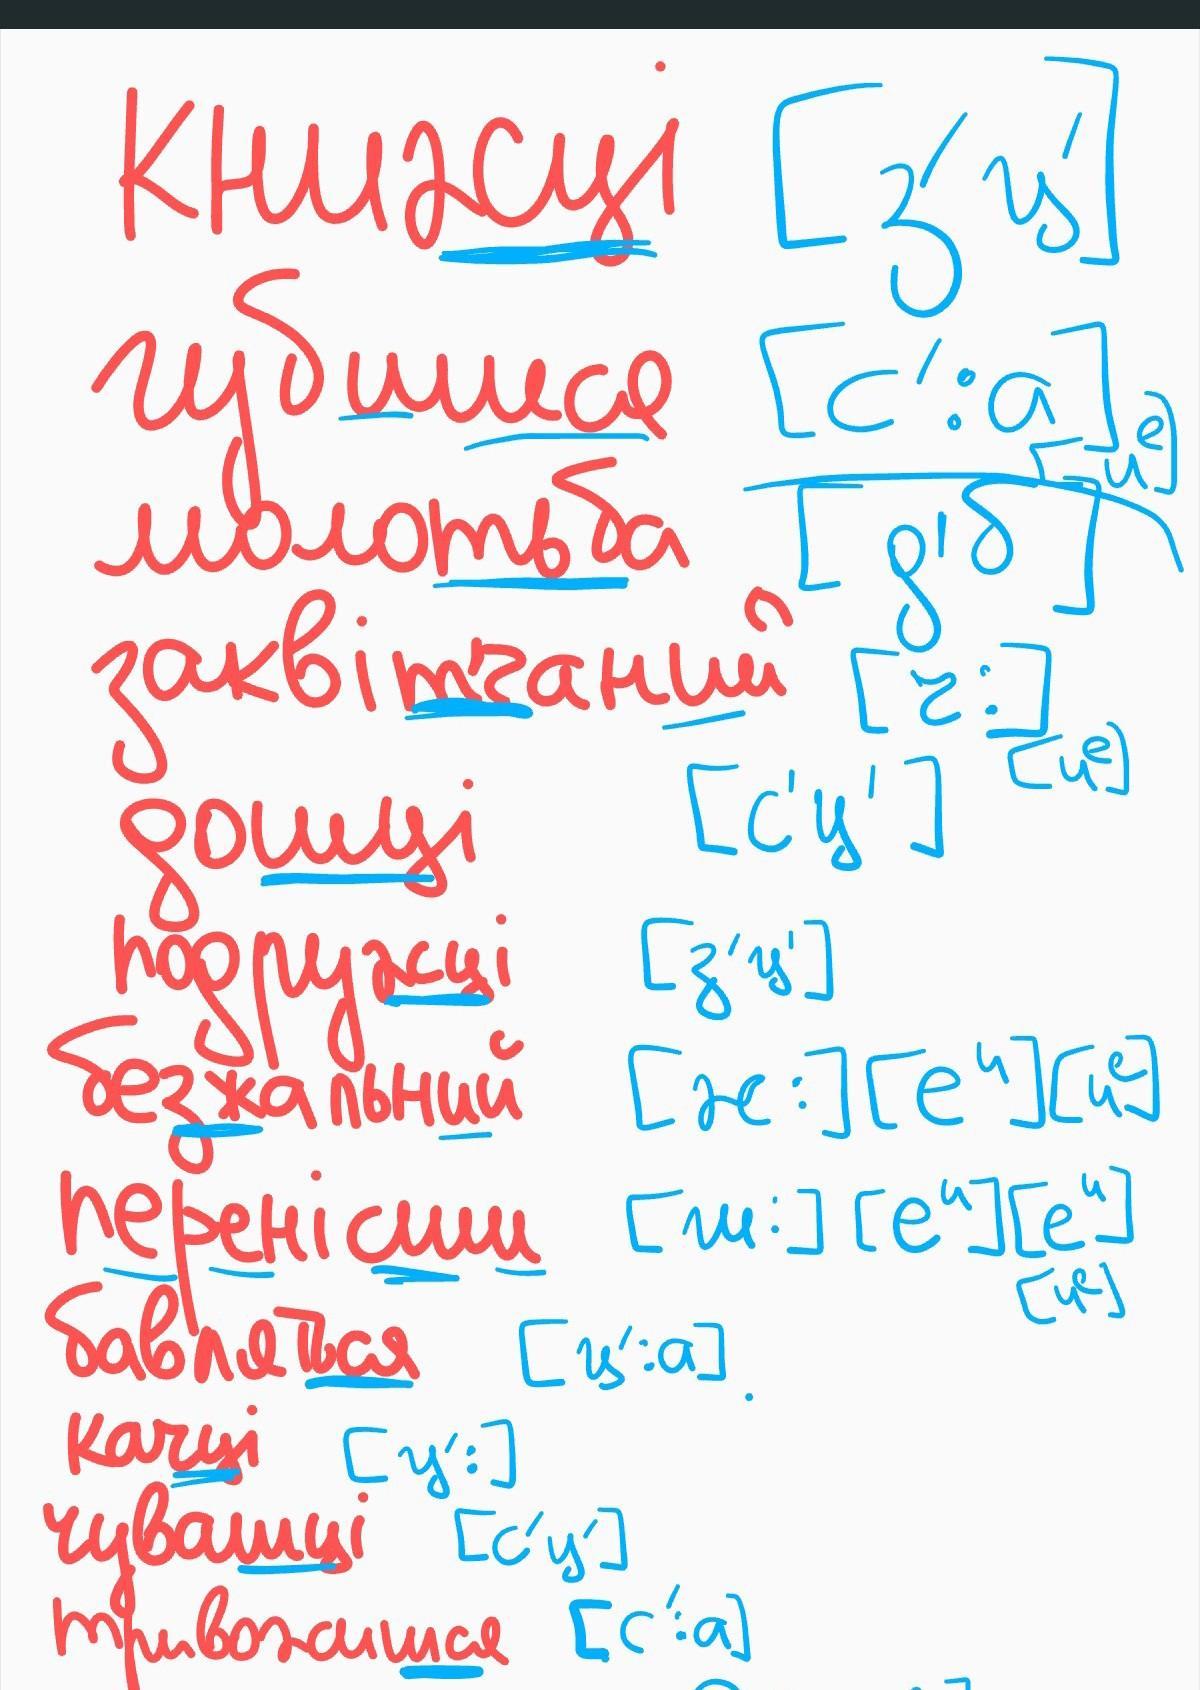 книжці [з′ц′]
губишся [с′:а] [и^е]
молотьба [д′б]
заквітчаний [ч:] [и^е]
дошці [с′ц′]
подружці [з′ц′]
безжальний [ж:] [е^и] [и^е]
перенісши [ш:] [е^и] [е^и] [и^е]
бавляться [ц′:а]
качці [ц′:]
чувашці [с′ц′]
тривожишся [с′:а]